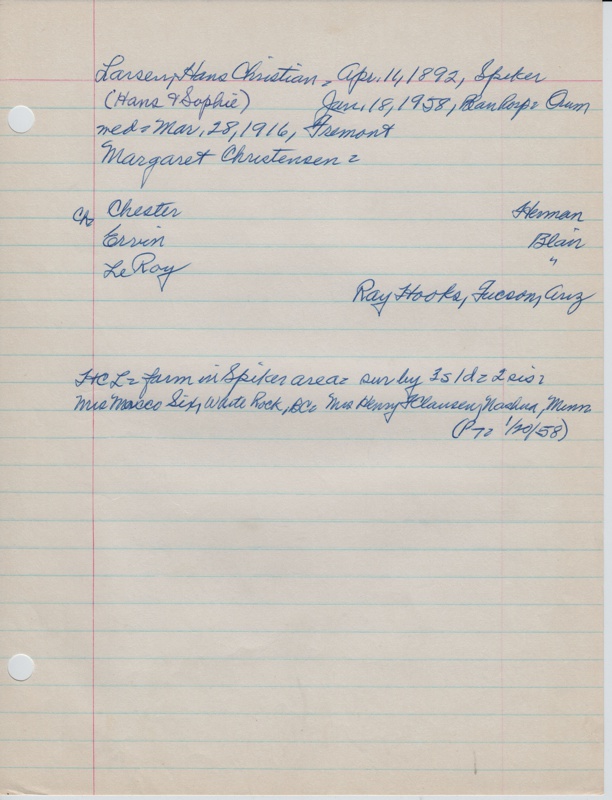 Larsen, Hans Christian = Apr. 14, 1892, Spiker
(Hans & Sophie) Jan. 18, 1958, Blanhosp = Orum
wed = Mar. 28, 1916, Fremont
Margaret Christensen =
Ch = Chester Herman
Ervin Blair
LeRoy "
Ray Hooks, Tucson, Ariz
HCL = farm in Spiker area = sur by 3s 1d = 2 sis =
Mrs Six, White Rock, BC = Mrs Henry Clausen, Nashua, Minn
(PT = 1/20/58)